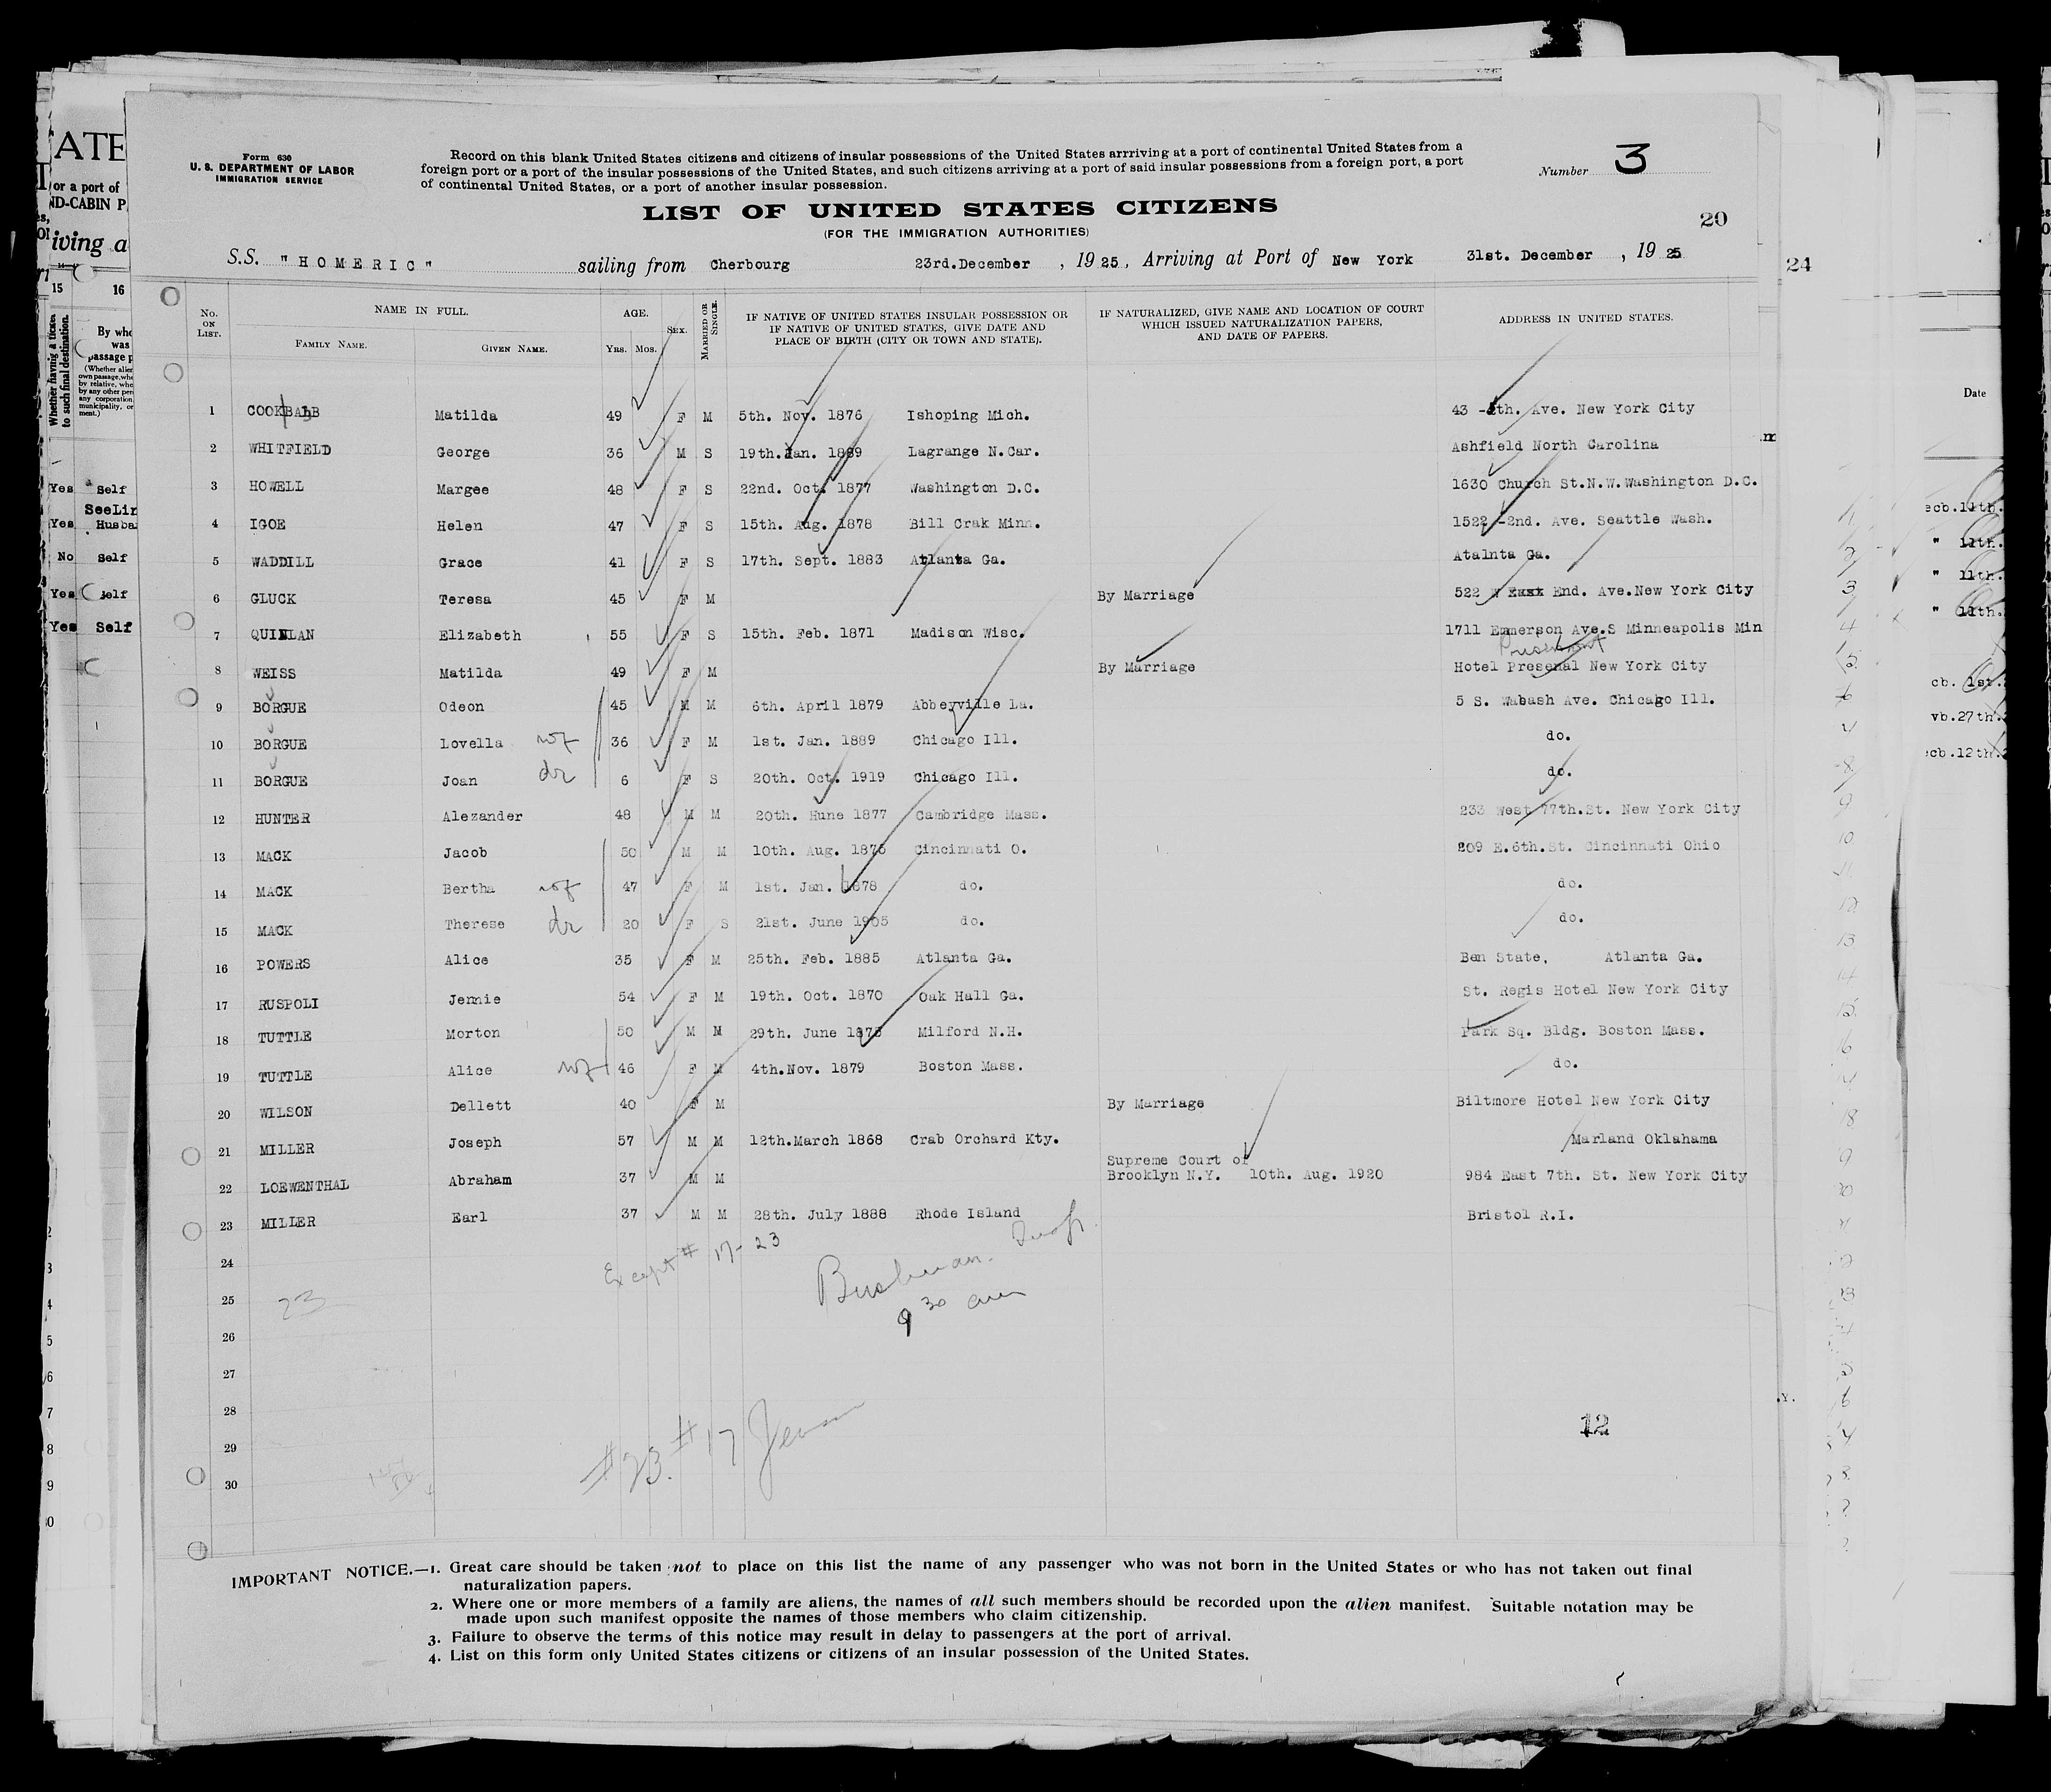 Form 630
U. S. DEPARTMENT OF LABOR
IMMIGRATION SERVICE
Record on this blank United States citizens and citizens of insular possessions of the United States arrriving at a port of continental United States from a
foreign port or a port of the insular possessions of the United States, and such citizens arriving at a port of said insular possessions from a foreign port, a port
of continental United States, or a port of another insular possession.
Number 3
LIST OF UNITED STATES CITIZENS
(FOR THE IMMIGRATION AUTHORITIES)
20
S.S. "HOMERIC" sailing from Cherbourg 23rd.December , 19 25, Arriving at Port of New York 31st. December , 19 25
24
No. ON LIST. NAME IN FULL. FAMILY NAME. GIVEN NAME. AGE. YRS. MOS. SEX. MARRIED OR SINGLE. IF NATIVE OF UNITED STATES INSULAR POSSESSION OR IF NATIVE OF UNITED STATES, GIVE DATE AND PLACE OF BIRTH (CITY OR TOWN AND STATE). IF NATURALIZED, GIVE NAME AND LOCATION OF COURT WHICH ISSUED NATURALIZATION PAPERS, AND DATE OF PAPERS. ADDRESS IN UNITED STATES.
1 Matilda 49 F M 5th. Nov. 1876 Ishoping Mich. 43 - Ave. New York City
2 WHITFIELD George 36 M S 19th.Jan. 1889 Lagrange N.Car. Ashfield North Carolina
3 HOWELL Margee 48 F S 22nd. Oct. 1877 Washington D.C. 1630 Church St.N.W.Washington D.C.
4 IGOE Helen 47 F S 15th. Aug. 1878 Bill Crak Minn. 1522 -2nd. Ave. Seattle Wash.
5 WADDILL Grace 41 F S 17th. Sept. 1883 Atlanta Ga. Atalnta Ga.
6 GLUCK Teresa 45 F M By Marriage 522 W End. Ave.New York City
7 QUINLAN Elizabeth 55 F S 15th. Feb. 1871 Madison Wisc. 1711 Emmerson Ave.S Minneapolis Min
8 WEISS Matilda 49 F M By Marriage Hotel Presenal New York City
9 BORGUE Odeon 45 M M 6th. April 1879 Abbeyville La. 5 S. Wabash Ave. Chicago Ill.
10 BORGUE Lovella wf 36 F M 1st. Jan. 1889 Chicago Ill. do.
11 BORGUE Joan dr 6 F S 20th. Oct. 1919 Chicago Ill. do.
12 HUNTER Alezander 48 M M 20th. Hune 1877 Cambridge Mass. 233 West 77th.St. New York City
13 MACK Jacob 50 M M 10th. Aug. 1875 Cincinnati O. 209 E.6th.St. Cincinnati Ohio
14 MACK Bertha wf 47 F M 1st. Jan. 1878 do. do.
15 MACK Therese dr 20 F S 21st. June 1905 do. do.
16 POWERS Alice 35 F M 25th. Feb. 1885 Atlanta Ga. Ben State, Atlanta Ga.
17 RUSPOLI Jennie 54 F M 19th. Oct. 1870 Oak Hall Ga. St. Regis Hotel New York City
18 TUTTLE Morton 50 M M 29th. June 1875 Milford N.H. Park Sq. Bldg. Boston Mass.
19 TUTTLE Alice wf 46 F M 4th.Nov. 1879 Boston Mass. do.
20 WILSON Dellett 40 F M By Marriage Biltmore Hotel New York City
21 MILLER Joseph 57 M M 12th.March 1868 Crab Orchard Kty. Marland Oklahama
22 LOEWENTHAL Abraham 37 M M Supreme Court of Brooklyn N.Y. 10th. Aug. 1920 984 East 7th. St. New York City
23 MILLER Earl 37 M M 28th. July 1888 Rhode Island Bristol R.I.
24
Except # 17-23
25
23
9 30 am
26
27
28
12
29
#23. #17
30
IMPORTANT NOTICE.—1. Great care should be taken not to place on this list the name of any passenger who was not born in the United States or who has not taken out final
naturalization papers.
2. Where one or more members of a family are aliens, the names of all such members should be recorded upon the alien manifest. Suitable notation may be
made upon such manifest opposite the names of those members who claim citizenship.
3. Failure to observe the terms of this notice may result in delay to passengers at the port of arrival.
4. List on this form only United States citizens or citizens of an insular possession of the United States.
15 16
Whether having a ticket to such final destination.
Yes Self
SeeLin
Yes Husba
No Self
Yes Self
Yes Self
Date